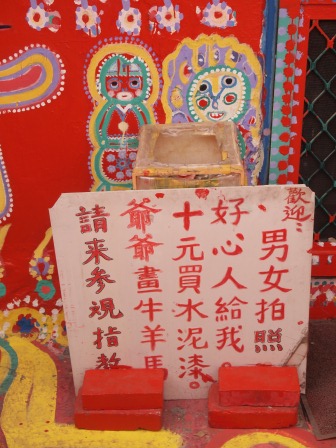 歡迎:
、男女拍照
好心人給我。
十元買水泥漆。
爺爺畫牛羊馬
請來參視指教